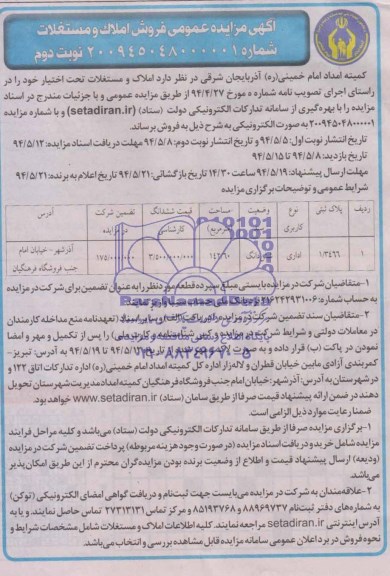 آگهی مزایده عمومی فروش املاک و مستغلات
شماره ۲۰۰۹۴۵۰۴۸۰۰۰۰۰۱ نوبت دوم
کمیته امداد امام خمینی(ره) آذربایجان شرقی در نظر دارد املاک و مستغلات تحت اختیار خود را در
راستای اجرای تصویب نامه شماره ه مورخ ۹۴/۴/۲۷ از طریق مزایده عمومی و با جزئیات مندرج در اسناد
مزایده را با بهره‌گیری از سامانه تدارکات الکترونیکی دولت (ستاد) (setadiran.ir) و با شماره مزایده
۲۰۰۹۴۵۰۴۸۰۰۰۰۰۱ به صورت الکترونیکی به شرح ذیل به فروش برساند.
تاریخ انتشار نوبت اول: ۹۴/۵/۵ و تاریخ انتشار نوبت دوم: ۹۴/۵/۸ مهلت دریافت اسناد مزایده: ۹۴/۵/۱۲
تاریخ بازدید: ۹۴/۵/۸ تا ۹۴/۵/۱۵
مهلت ارسال پیشنهاد: ۹۴/۵/۱۹ ساعت ۱۴/۳۰ تاریخ بازگشائی: ۹۴/۵/۲۱ تاریخ اعلام به برنده: ۹۴/۵/۲۱
شرایط عمومی و توضیحات برگزاری مزایده
ردیف پلاک ثبتی نوع کاربری وضعیت مساحت قیمت ششدانگ کارشناسی تضمین شرکت در مزایده آدرس
۱ ۱/۳۴۶۶ اداری ۳/۵۰۰/۰۰۰/۰۰۰ ۱۷۵/۰۰۰/۰۰۰ آذرشهر - خیابان امام جنب فروشگاه فرهنگیان
۱- متقاضیان شرکت در مزایده بایستی مبلغ سپرده قطعه مورد نظر را به عنوان تضمین برای شرکت در مزایده
به حساب شماره:
۲- متقاضیان سند تضمین شرکت در مزایده (اصل پاکت الف) و سایر اسناد (تعهدنامه منع مداخله کارمندان
در معاملات دولتی و شرایط شرکت در مزایده و کپی شناسنامه و کارت ملی) را پس از تکمیل و مهر و امضا
نمودن در پاکت (ب) قرار داده و به صورت تا ۹۴/۵/۱۹ به آدرس: تبریز-
کمربندی آزادی مابین خیابان قطران و لاله‌زار اداره کل کمیته امداد امام خمینی(ره) اداره تدارکات اتاق ۱۲۲ و
در شهرستان به آدرس: آذرشهر: خیابان امام جنب فروشگاه فرهنگیان کمیته امداد مدیریت شهرستان تحویل
دهند در ضمن ارائه پیشنهاد قیمت صرفا از طریق سامان (ستاد) www.setadiran.ir خواهد بود.
ضمنا رعایت موارد ذیل الزامی است.
۱- برگزاری مزایده صرفا از طریق سامانه تدارکات الکترونیکی دولت (ستاد) می‌باشد و کلیه مراحل فرایند
مزایده شامل خرید و دریافت اسناد مزایده (در صورت وجود هزینه مربوطه) پرداخت تضمین شرکت در مزایده
(ودیعه) ارسال پیشنهاد قیمت و اطلاع از وضعیت برنده بودن مزایده‌گران محترم از این طریق امکان‌پذیر
می‌باشد.
۲- علاقه‌مندان به شرکت در مزایده می‌بایست جهت ثبت‌نام و دریافت گواهی امضای الکترونیکی (توکن)
به شماره‌های دفتر ثبت‌نام ۸۸۹۶۹۷۳۷ و ۸۵۱۹۳۷۶۸ و مرکز تماس ۲۷۳۱۳۱۳۱ تماس حاصل نمایند. و یا به
آدرس اینترنتی setadiran.ir مراجعه نمایند. کلیه اطلاعات املاک و مستغلات شامل مشخصات شرایط و
نحوه فروش در برد اعلان عمومی سامانه مزایده قابل مشاهده بررسی و انتخاب می‌باشد.